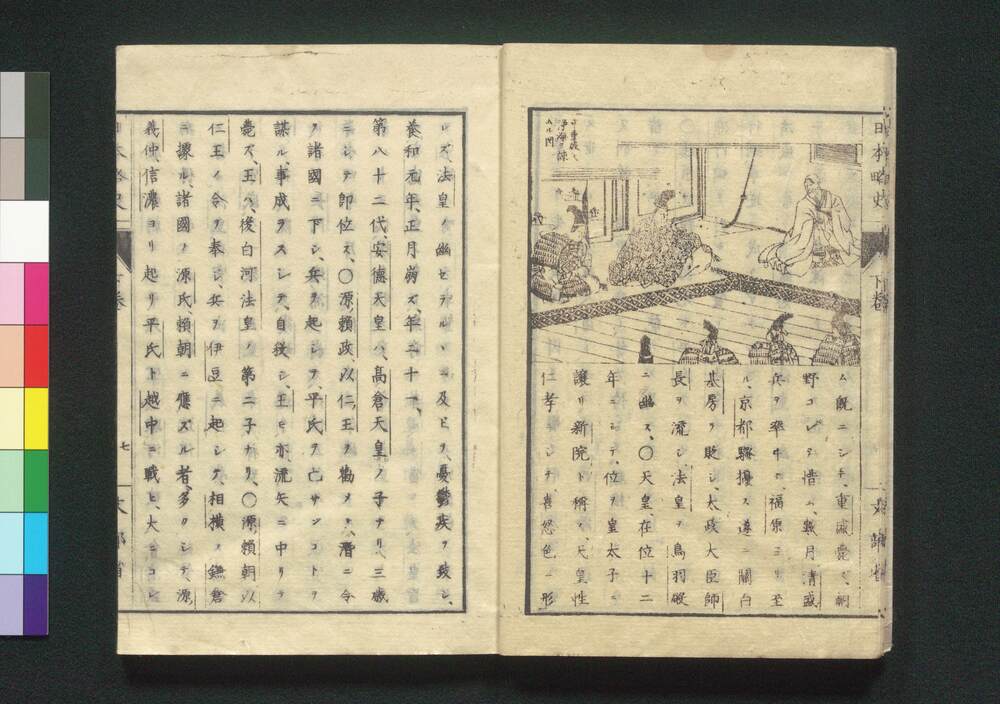 日本略史
下卷
平重盛
淨海ヲ諫
ムル圖
ム既ニシテ、重盛薨ス、朝
野コレヲ惜ム、數月清盛
兵ヲ率ヰ、福原ヨリ至
ル、京都騷擾ス遂ニ關白
基房ヲ貶シ太政大臣師
長ヲ流シ、法皇ヲ鳥羽殿
ニ幽ス、〇天皇在位十二
年ニシテ、位ヲ皇太子ニ
讓リ新院ト稱ス、天皇性
仁孝ニシテ、喜怒色ニ形
レズ、法皇ノ幽セラルヽニ及ビ、憂鬱疾ヲ致シ、
養和元年、正月崩ズ、年二十一、
第八十二代、安德天皇ハ、高倉天皇ノ子ナリ、三歲
ニシテ卽位ス、〇源賴政、以仁王ヲ勸メテ、潛ニ令
ヲ諸國ニ下シ、兵ヲ起シテ、平氏ヲ亡サンコトヲ
謀ル、事成ラズシテ、自殺シ、王モ亦流矢ニ中リテ
薨ズ、王ハ、後白河法皇ノ第二子ナリ、〇源賴朝以
仁王ノ令ヲ奉シ、兵ヲ伊豆ニ起シテ、相摸ノ鎌倉
ニ據ル、諸國ノ源氏、賴朝ニ應ズル者、多クシテ、源
義仲、信濃ヨリ起リ平氏ト越中ニ戰ヒ、大ニコレ
七